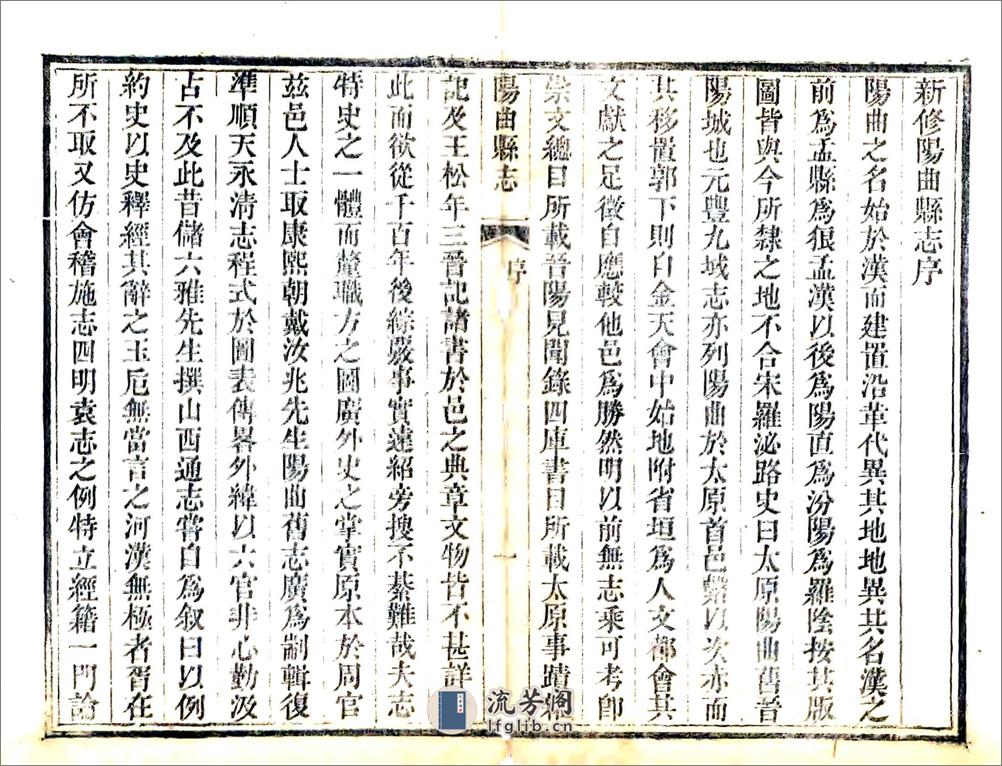 新修陽曲縣志序
陽曲之名始於漢而建置沿革代異其地地異其名漢之
前爲盂縣爲狼孟漢以後爲陽直爲汾陽爲羅陰按其版
圖皆與今所隸之地不合宋羅泌路史曰太原陽曲舊晉
陽城也元豐九域志亦列陽曲於太原首邑繫以次赤而
其移置郭下則自金天會中始地附省垣爲人文都會其
文獻之足徵自應較他邑爲勝然明以前無志乘可考卽
崇文總目所載晉陽見聞錄四庫書目所載太原事蹟
陽曲縣志
序
一
記及王松年三晉記諸書於邑之典章文物皆不甚詳
此而欲從千百年後綜嚴事實遠紹旁搜不綦難哉夫志
特史之一體而釐職方之圖廣外史之掌實原本於周官
茲邑人士取康熙朝戴汝兆先生陽曲舊志廣爲劀輯復
準順天永清志程式於圖表傳畧外緯以六官非心勤汲
古不及此昔儲六雅先生撰山西通志嘗自爲叙曰以例
約史以史釋經其辭之玉卮無當言之河漢無極者胥在
所不取又仿會稽施志四明袁志之例特立經籍一門論
流芳阁
lfglib.cn